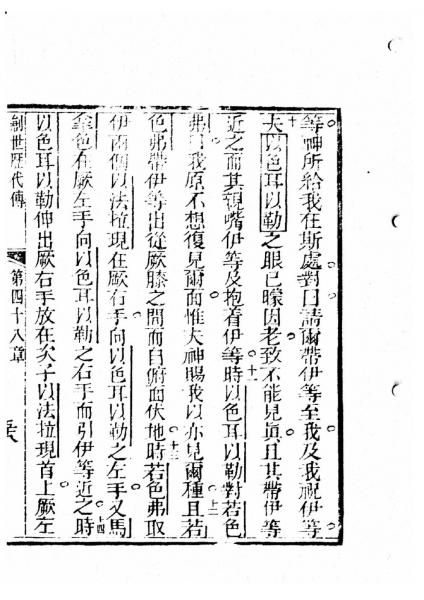 等神所給我在斯處對曰請爾帶伊等至我及我祝伊等
十夫以色耳以勒之眼已矇因老致不能見眞且其帶伊等
近之而其親嘴伊等及抱着伊等十一時以色耳以勒對若色
弗曰我原不想復見爾面惟夫神賜我以亦見爾種且若十二
色弗帶伊等出從厥膝之間而自俯面伏地十三時若色弗取
伊兩個以法拉現在厥右手向以色耳以勒之左手又馬
拿色在厥左手向以色耳以勒之右手而引伊等近之十四時
以色耳以勒伸出厥右手放在次子以法拉現首上厥左
創世歷代傳
第四十八章